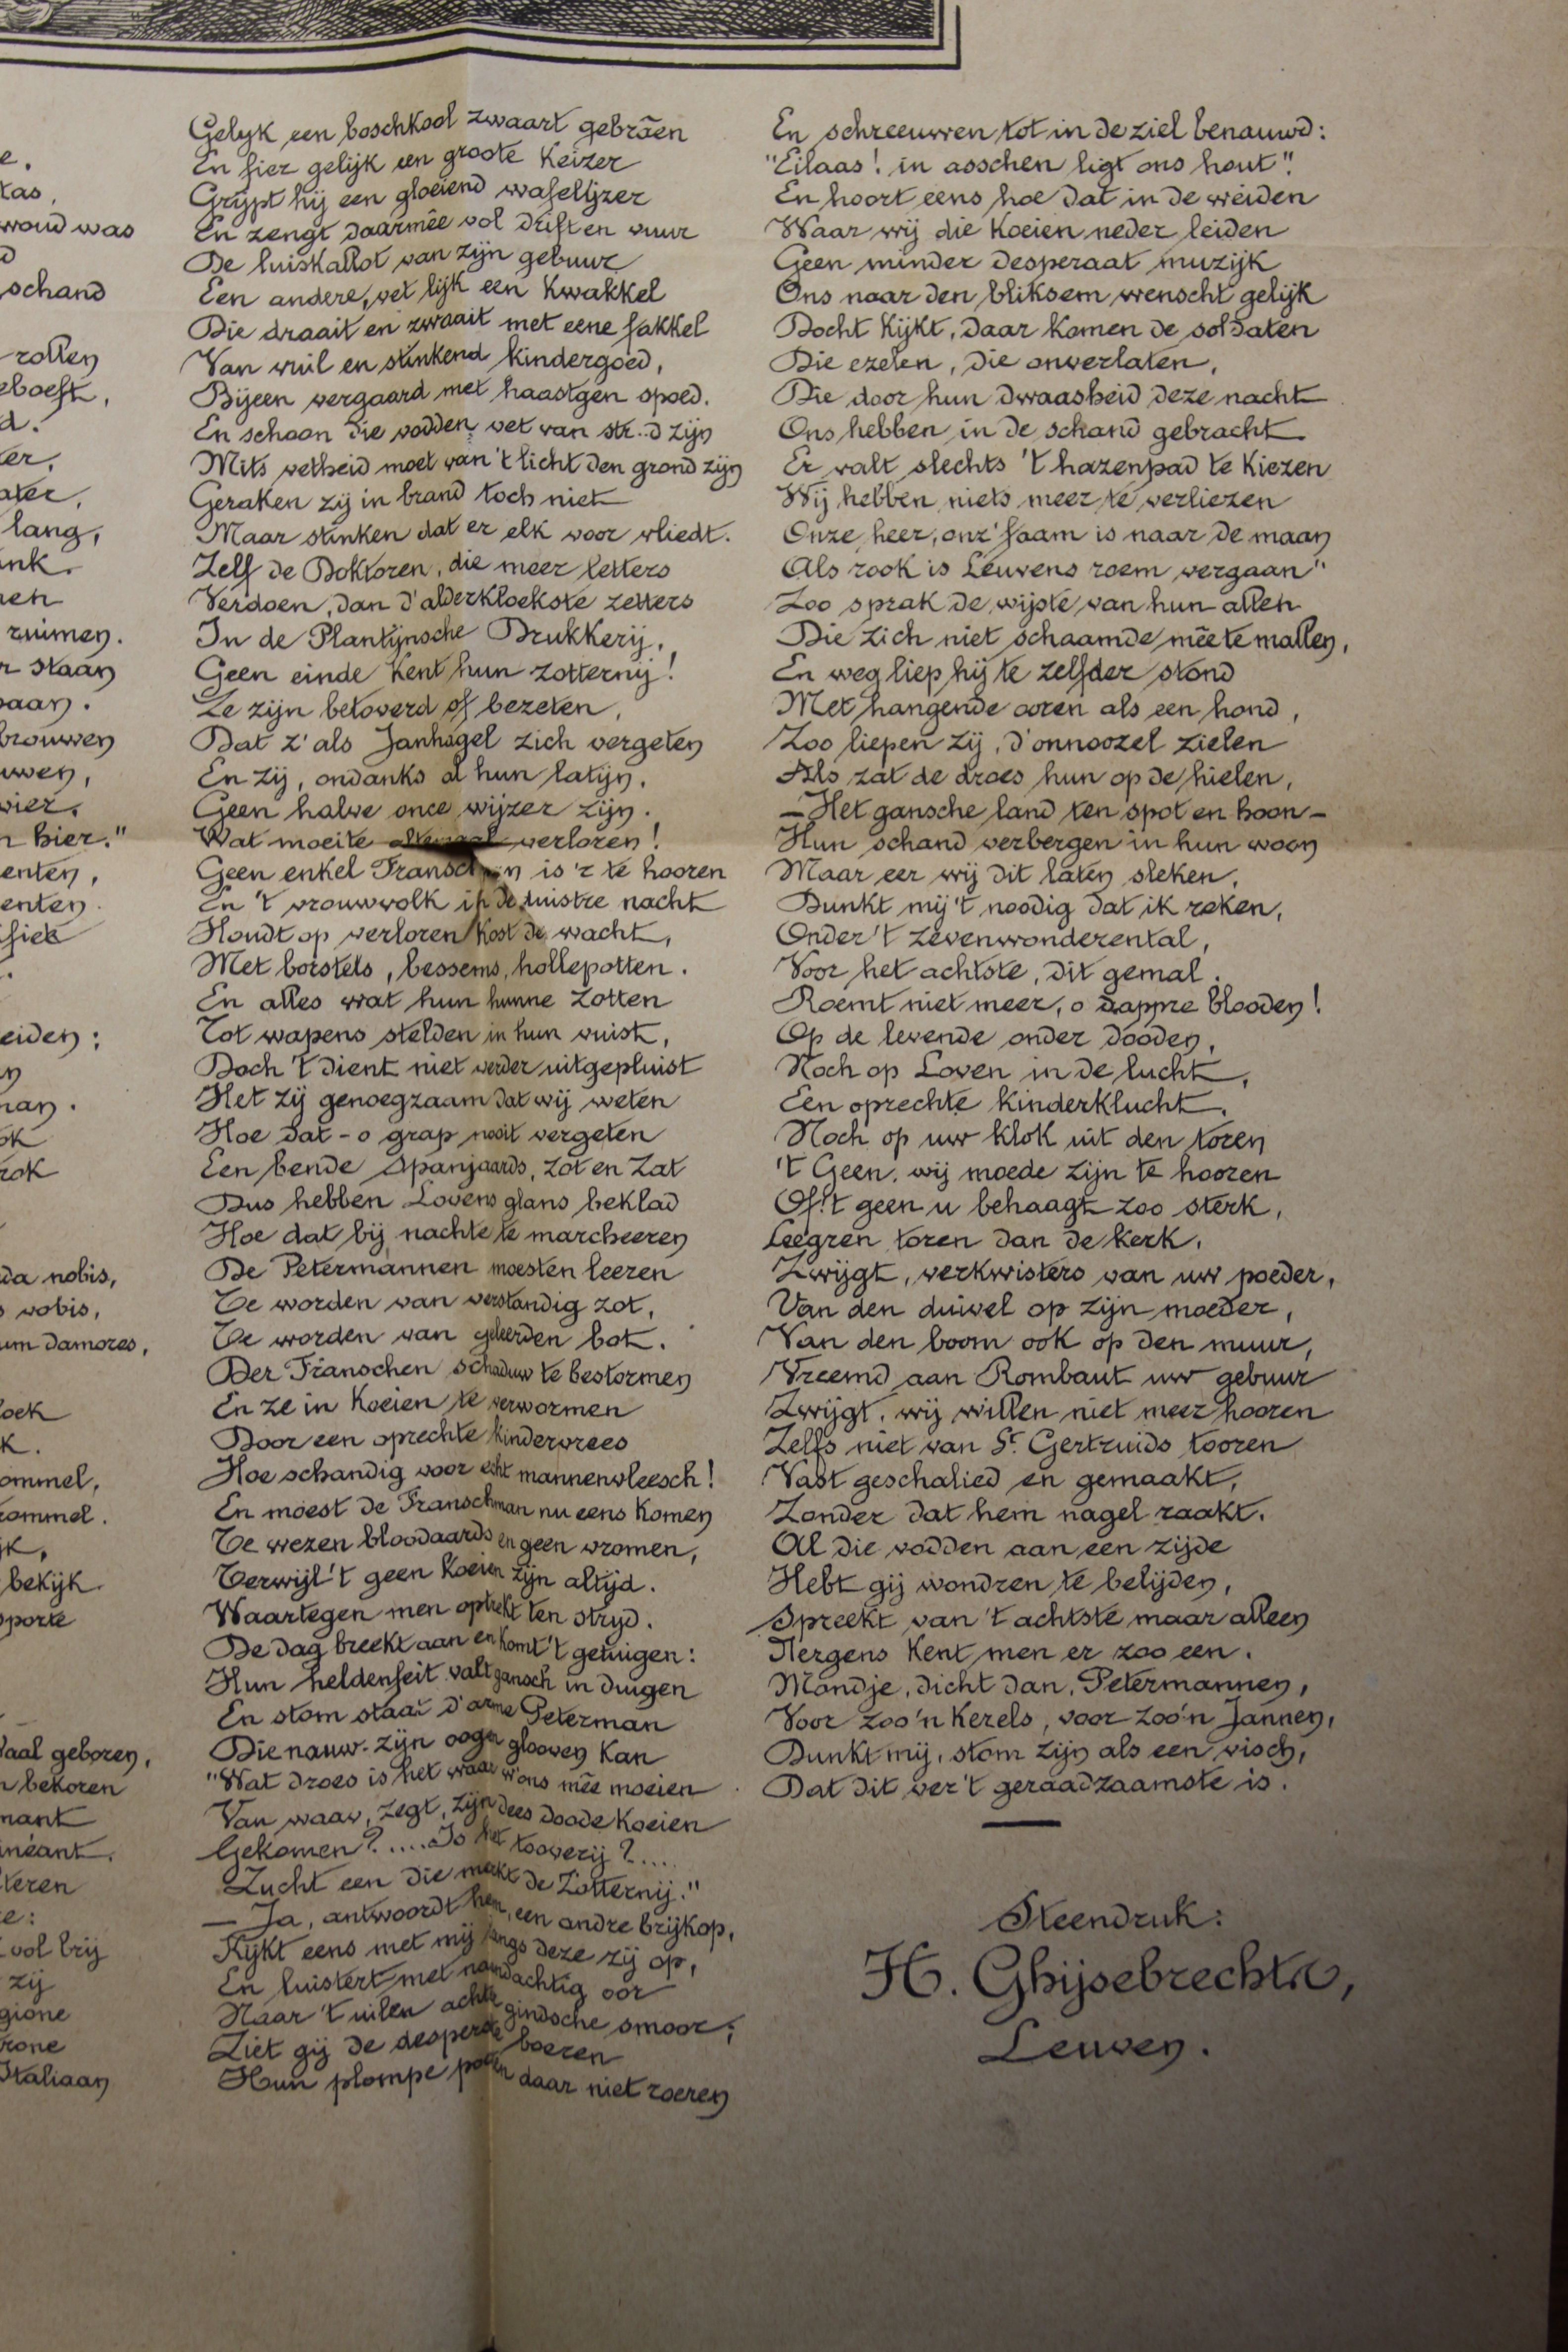 e.
tas,
woud was
schand
rollen
eboeft,
d.
er,
ater,
lang,
ank.
nen
ruimen.
r staan
paan.
brouwen
uwen,
vier,
n hier."
enten,
enten.
fiek
eiden;
an.
ok
rok
da nobis,
s vobis,
um damores,
oek
k.
ommel,
rommel.
jk,
bekijk.
porte
aal geboren,
n bekoren
mant
inéant.
teren
e:
vol brij
zij
gione
rone
Italiaan
Gelyk een boschkool zwaart gebrāen
En fier gelijk een groote Keizer
Grijpt hij een gloeiend wafelijzer
En zengt daarmêe vol drift en vuur
De luiskallot van zijn gebuur
Een andere, vet lijk een Kwakkel
Die draait en zwaait met eene fakkel
Van vuil en stinkend kindergoed,
Bijeen vergaard met haastgen spoed.
En schoon die vodden vet van str..d zijn
Mits vetheid moet van 't licht den grond zijn
Geraken zij in brand toch niet
Maar stinken dat er elk voor vliedt.
Zelf de Doktoren, die meer letters
Verdoen, dan d'alderkloekste zetters
In de Plantijnsche Drukkerij,
Geen einde Kent hun zotternij!
Ze zijn betoverd of bezeten,
Dat z'als Janhagel zich vergeten
En zij, ondanks al hun latijn,
Geen halve once wijzer zijn.
Wat moeite altemaal verloren!
Geen enkel Franschman is 'r te hooren
En 't vrouwvolk in de duistre nacht
Houdt op verloren Kost de wacht,
Met borstels, bessems, hollepotten.
En alles wat hun hunne zotten
Tot wapens stelden in hun vuist,
Doch 't dient niet verder uitgepluist
Het zij genoegzaam dat wij weten
Hoe dat - o grap nooit vergeten
Een bende Spanjaards, zot en zat
Dus hebben Lovens glans beklad
Hoe dat bij nachte te marcheeren
De Petermannen moesten leeren
Te worden van verstandig zot,
Te worden van geleerden bot.
Der Franschen schaduw te bestormen
En ze in Koeien te vervormen
Door een oprechte kindervrees
Hoe schandig voor echt mannenvleesch!
En moest de Franschman nu eens Komen
Te wezen bloodaards en geen vromen,
Terwijl 't geen Koeien zijn altijd.
Waartegen men optrekt ten stryd.
De dag breekt aan en komt 't getuigen:
Hun heldenfeit valt gansch in duigen
En stom staat d'arme Peterman
Die nauw. zijn oogen glooven Kan
"Wat droes is het waar w'ons mêe moeien
Van waar, zegt, zijn dees doode Koeien
Gekomen?....Is het tooverij?....
Zucht een die merkt de Zotternij."
— Ja, antwoordt hem, een andre brijkop,
Kijkt eens met mij langs deze zij op,
En luistert met aandachtig oor
Naar 't uilen achter gindsche smoor;
Ziet gij de desperate boeren
Hun plompe pooten daar niet roeren
En schreeuwen tot in de ziel benauwd:
"Eilaas! in asschen ligt ons hout".
En hoort eens hoe dat in de weiden
Waar wij die Koeien neder leiden
Geen minder desperaat muzijk
Ons naar den bliksem wenscht gelijk
Docht Kijkt, daar komen de soldaten
Die ezelen, die onverlaten,
Die door hun dwaasheid deze nacht
Ons hebben in de schand gebracht
Er valt slechts 't hazenpad te Kiezen
Wij hebben niets meer te verliezen
Onze heer, onz' faam is naar de maan
Als rook is Leuvens roem vergaan"
Zoo sprak de wijste van hun allen
Die zich niet schaamde mêe te mallen,
En weg liep hij te zelfder stond
Met hangende ooren als een hond,
Zoo liepen zij, d'onnoozel zielen
Als zat de droes hun op de hielen,
— Het gansche land ten spot en hoon —
Hun schand verbergen in hun woon
Maar eer wij dit laten steken,
Dunkt mij 't noodig dat ik reken,
Onder 't zevenwonderental,
Voor het achtste, dit gemal.
Roemt niet meer, o dappre blooden!
Op de levende onder dooden,
Noch op Loven in de lucht,
Een oprechte kinderklucht.
Noch op uw klok uit den toren
't Geen. wij moede zijn te hooren
Of 't geen u behaagt zoo sterk,
Leegren toren dan de kerk.
Zwijgt, verkwisters van uw poeder,
Van den duivel op zijn moeder,
Van den boom ook op den muur,
Vreemd aan Rombaut uw gebuur
Zwijgt, wij willen niet meer hooren
Zelfs niet van St. Gertruids tooren
Vast geschalied en gemaakt,
Zonder dat hem nagel raakt.
Al die vodden aan een zijde
Hebt gij wondren te belijden,
Spreekt van 't achtste maar alleen
Nergens Kent men er zoo een.
Mondje, dicht dan, Petermannen,
Voor zoo'n Kerels, voor zoo'n Jannen,
Dunkt mij, stom zijn als een visch,
Dat dit ver't geraadzaamste is.
Steendruk:
H. Ghijsebrechts,
Leuven.